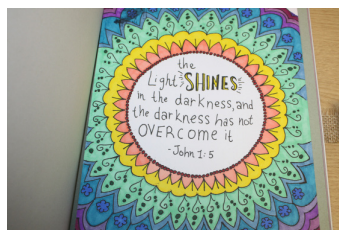 the
Light SHINES
in the darkness, and
the darkness has not
OVERCOME it
- John 1:5